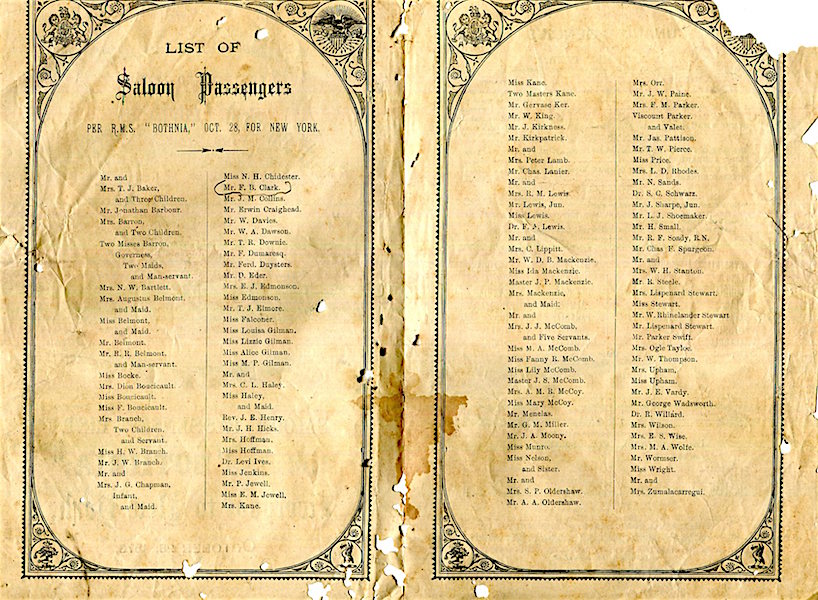 LIST OF
Saloon Passengers
PER R.M.S. "BOTHNIA," OCT. 28, FOR NEW YORK.
Mr. and
Mrs. T. J. Baker,
and Three Children.
Mr. Jonathan Barbour.
Mrs. Barron,
and Two Children.
Two Misses Barron,
Governess,
Two Maids,
and Man-servant.
Mrs. N. W. Bartlett.
Mrs. Augustus Belmont,
and Maid.
Miss Belmont,
and Maid.
Mr. Belmont.
Mr. R. R. Belmont,
and Man-servant.
Miss Bocke.
Mrs. Dion Boucicault.
Miss Boucicault.
Miss F. Boucicault.
Mrs Branch,
Two Children,
and Servant.
Miss H. W. Branch.
Mr. J. W. Branch.
Mr. and
Mrs. J. G. Chapman,
Infant,
and Maid.
Miss N. H. Chidester.
Mr. F. B. Clark.
Mr. J. M. Collins.
Mr. Erwin Craighead.
Mr. W. Davies.
Mr. W. A. Dawson.
Mr. T. R. Downie.
Mr. F. Dumaresq.
Mr. Ferd. Duysters.
Mr. D. Eder.
Mrs. E. J. Edmonson.
Miss Edmonson.
Mr. T. J. Elmore.
Miss Falconer.
Miss Louisa Gilman.
Miss Lizzie Gilman.
Miss Alice Gilman.
Miss M. P. Gilman.
Mr. and
Mrs. C. L. Haley.
Miss Haley,
and Maid.
Rev. J. E. Henry.
Mr. J. H. Hicks.
Mrs. Hoffman.
Miss Hoffman.
Dr. Levi Ives.
Miss Jenkins.
Mr. P. Jewell.
Miss E. M. Jewell.
Mrs. Kane.
Miss Kane.
Two Masters Kane.
Mr. Gervase Ker.
Mr. W. King.
Mr. J. Kirkness.
Mr. Kirkpatrick.
Mr. and
Mrs. Peter Lamb.
Mr. Chas. Lanier.
Mr. and
Mrs. R. M. Lewis.
Mr. Lewis, Jun.
Miss Lewis.
Dr. F. J. Lewis.
Mr. and
Mrs. C. Lippitt.
Mr. W. D. B. Mackenzie.
Miss Ida Mackenzie.
Master J. P. Mackenzie.
Mrs. Mackenzie,
and Maid.
Mr. and
Mrs. J. J. McComb,
and Five Servants.
Miss M. A. McComb.
Miss Fanny R. McComb.
Miss Lily McComb.
Master J. S. McComb.
Mrs. A. M. R. McCoy.
Miss Mary McCoy.
Mr. Menelas.
Mr. G. M. Miller.
Mr. J. A. Moony.
Miss Munro.
Miss Nelson,
and Sister.
Mr. and
Mrs. S. P. Oldershaw.
Mr. A. A. Oldershaw.
Mrs. Orr.
Mr. J. W. Paine.
Mrs. F. M. Parker.
Viscount Parker.
and Valet.
Mr. Jas. Pattison.
Mr. T. W. Pierce.
Miss Price.
Mrs. L. D. Rhodes.
Mr. N. Sands.
Dr. S. C. Schwarz.
Mr. J. Sharpe, Jun.
Mr. L. J. Shoemaker.
Mr. H. Small.
Mr. R. F. Soady, R.N.
Mr. Chas F. Spurgeon.
Mr. and
Mrs. W. H. Stanton.
Mr. R. Steele.
Mrs. Lispenard Stewart.
Miss Stewart.
Mr. W. Rhinelander Stewart
Mr. Lispenard Stewart.
Mr. Parker Swift.
Mrs. Ogle Tayloe.
Mr. W. Thompson.
Mrs. Upham.
Miss Upham.
Mr. J. E. Vardy.
Mr. George Wadsworth.
Dr. R. Willard.
Mrs. Wilson.
Mrs. E. S. Wise.
Mrs. M. A. Wolfe.
Mr. Wormser.
Miss Wright.
Mr. and
Mrs. Zumalacarregui.